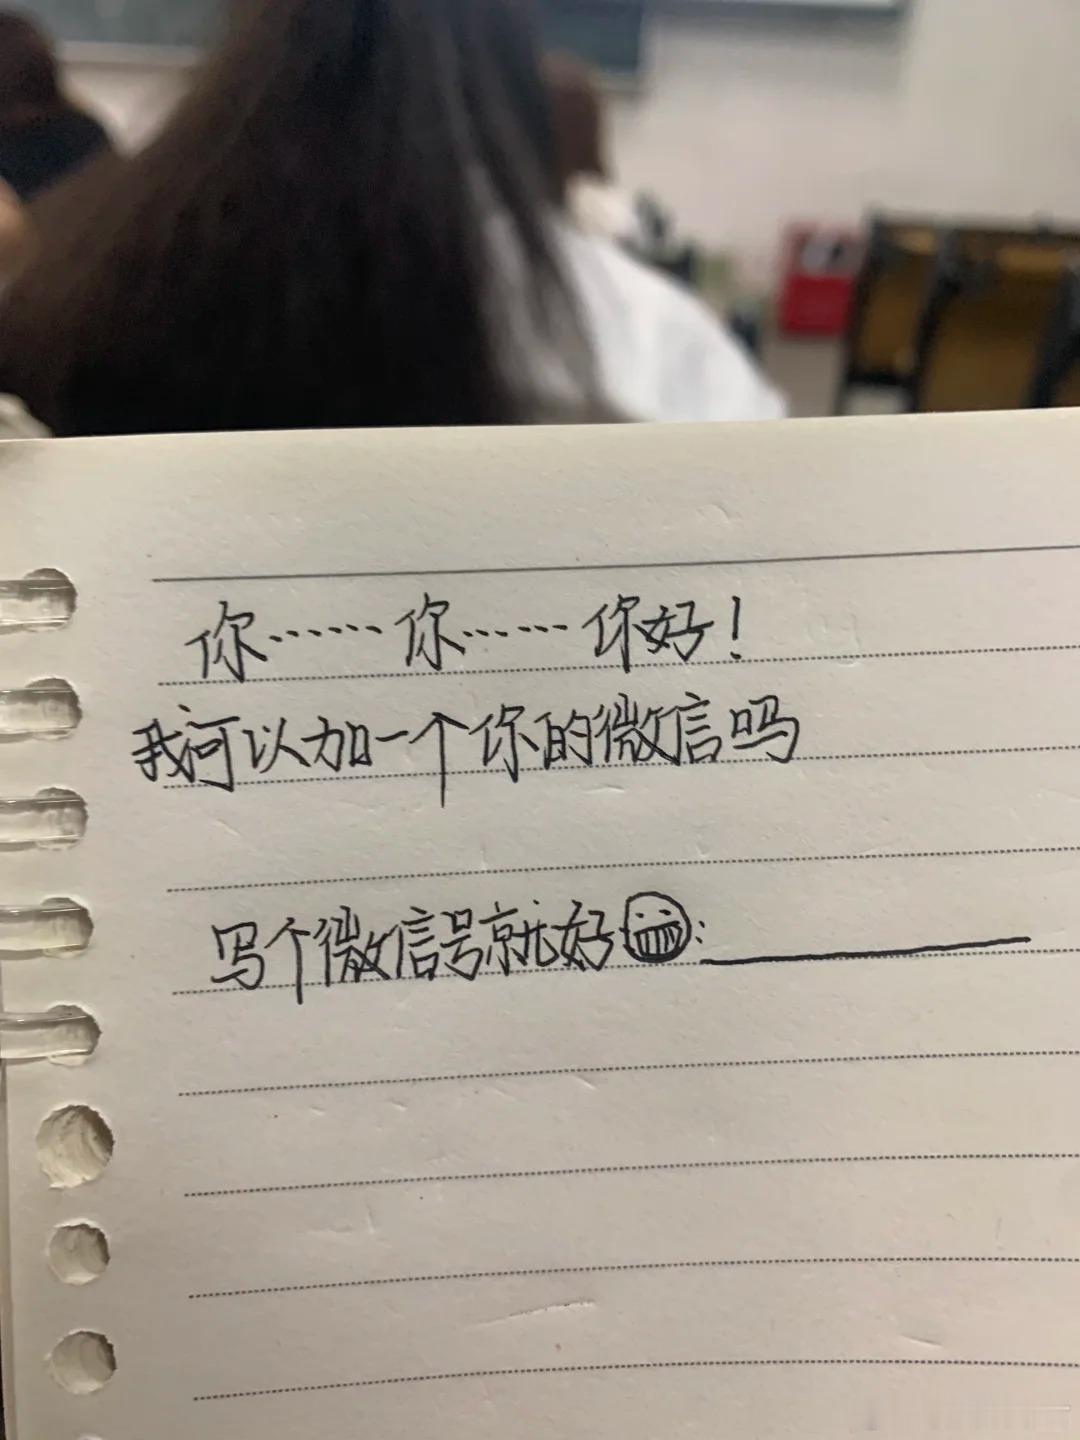 你……你……你好！
我可以加一个你的微信吗
写个微信号就好😁: